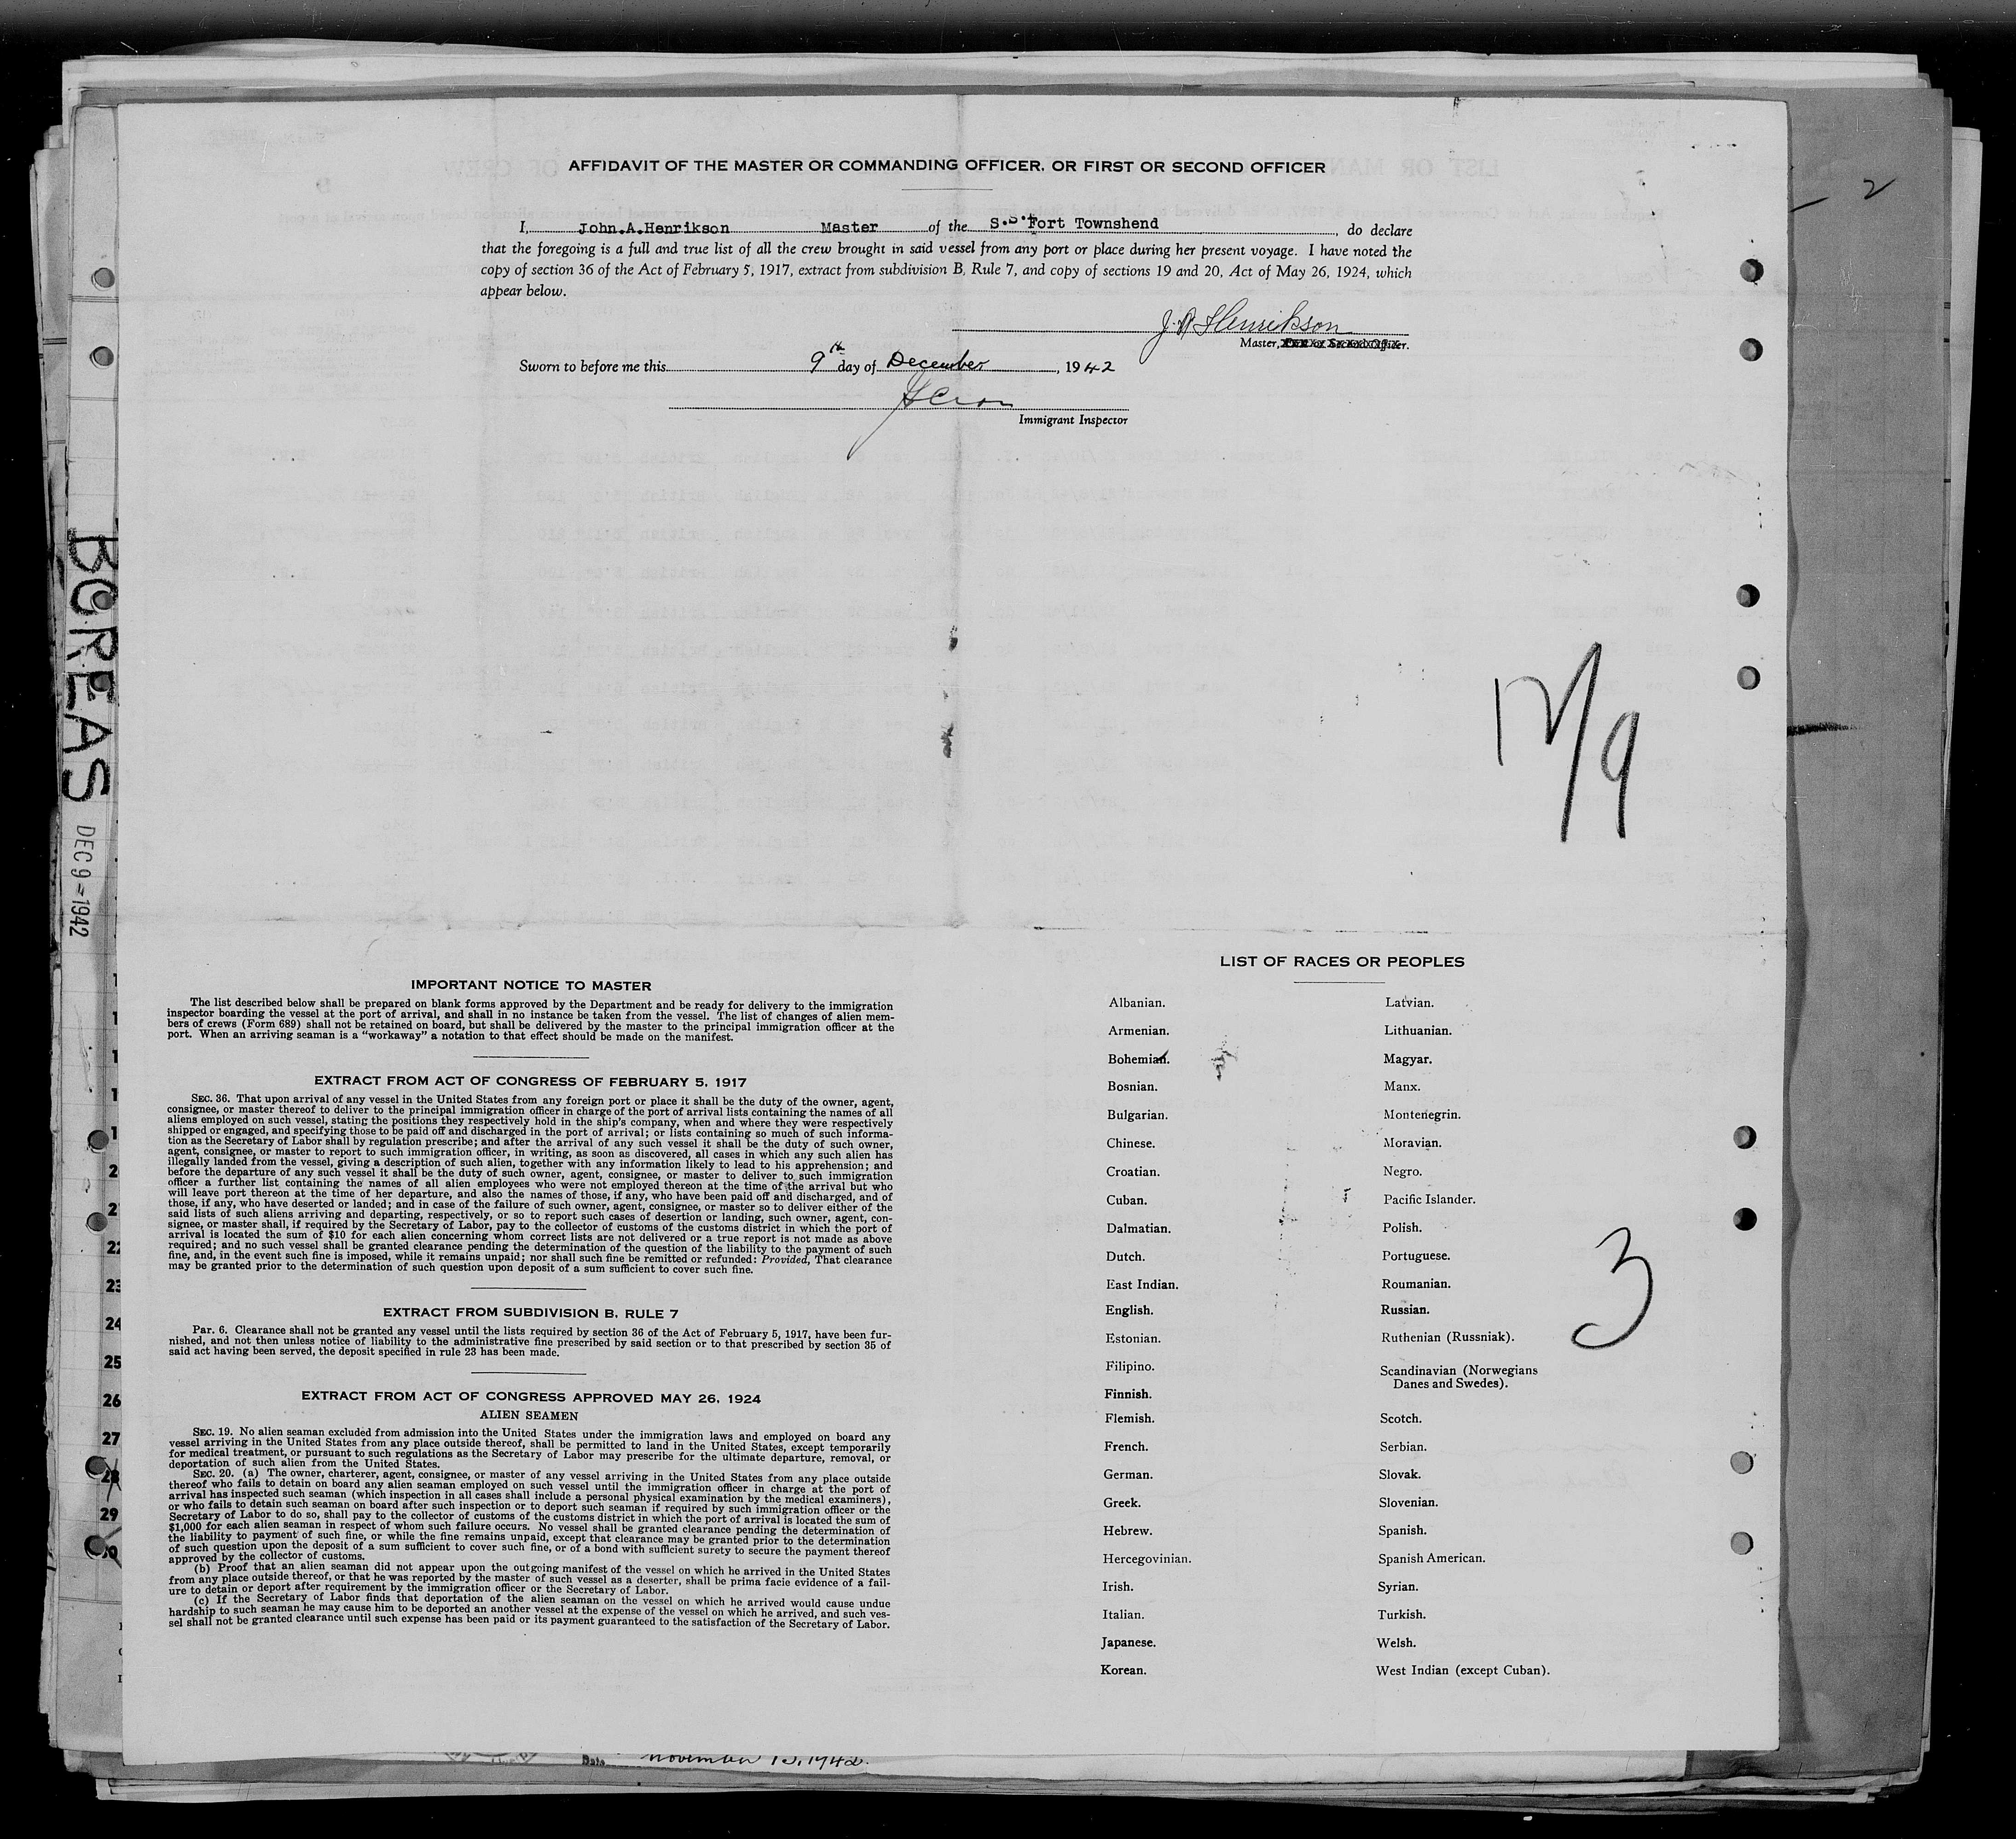 AFFIDAVIT OF THE MASTER OR COMMANDING OFFICER, OR FIRST OR SECOND OFFICER
I, John.A.Henrikson Master of the S.S. Fort Townshend, do declare
that the foregoing is a full and true list of all the crew brought in said vessel from any port or place during her present voyage. I have noted the
copy of section 36 of the Act of February 5, 1917, extract from subdivision B, Rule 7, and copy of sections 19 and 20, Act of May 26, 1924, which
appear below.
J. A Henrikson
Master, First or Second Officer.
Sworn to before me this 9th day of December, 1942
Immigrant Inspector
2
BOREAS
DEC 9 - 1942
12/9
IMPORTANT NOTICE TO MASTER
The list described below shall be prepared on blank forms approved by the Department and be ready for delivery to the immigration
inspector boarding the vessel at the port of arrival, and shall in no instance be taken from the vessel. The list of changes of alien mem-
bers of crews (Form 689) shall not be retained on board, but shall be delivered by the master to the principal immigration officer at the
port. When an arriving seaman is a "workaway" a notation to that effect should be made on the manifest.
EXTRACT FROM ACT OF CONGRESS OF FEBRUARY 5, 1917
SEC. 36. That upon arrival of any vessel in the United States from any foreign port or place it shall be the duty of the owner, agent,
consignee, or master thereof to deliver to the principal immigration officer in charge of the port of arrival lists containing the names of all
aliens employed on such vessel, stating the positions they respectively hold in the ship's company, when and where they were respectively
shipped or engaged, and specifying those to be paid off and discharged in the port of arrival; or lists containing so much of such informa-
tion as the Secretary of Labor shall by regulation prescribe; and after the arrival of any such vessel it shall be the duty of such owner,
agent, consignee, or master to report to such immigration officer, in writing, as soon as discovered, all cases in which any such alien has
illegally landed from the vessel, giving a description of such alien, together with any information likely to lead to his apprehension; and
before the departure of any such vessel it shall be the duty of such owner, agent, consignee, or master to deliver to such immigration
officer a further list containing the names of all alien employees who were not employed thereon at the time of the arrival but who
will leave port thereon at the time of her departure, and also the names of those, if any, who have been paid off and discharged, and of
those, if any, who have deserted or landed; and in case of the failure of such owner, agent, consignee, or master so to deliver either of the
said lists of such aliens arriving and departing, respectively, or so to report such cases of desertion or landing, such owner, agent, con-
signee, or master shall, if required by the Secretary of Labor, pay to the collector of customs of the customs district in which the port of
arrival is located the sum of $10 for each alien concerning whom correct lists are not delivered or a true report is not made as above
required; and no such vessel shall be granted clearance pending the determination of the question of the liability to the payment of such
fine, and, in the event such fine is imposed, while it remains unpaid; nor shall such fine be remitted or refunded: Provided, That clearance
may be granted prior to the determination of such question upon deposit of a sum sufficient to cover such fine.
EXTRACT FROM SUBDIVISION B, RULE 7
Par. 6. Clearance shall not be granted any vessel until the lists required by section 36 of the Act of February 5, 1917, have been fur-
nished, and not then unless notice of liability to the administrative fine prescribed by said section or to that prescribed by section 35 of
said act having been served, the deposit specified in rule 23 has been made.
EXTRACT FROM ACT OF CONGRESS APPROVED MAY 26, 1924
ALIEN SEAMEN
SEC. 19. No alien seaman excluded from admission into the United States under the immigration laws and employed on board any
vessel arriving in the United States from any place outside thereof, shall be permitted to land in the United States, except temporarily
for medical treatment, or pursuant to such regulations as the Secretary of Labor may prescribe for the ultimate departure, removal, or
deportation of such alien from the United States.
SEC. 20. (a) The owner, charterer, agent, consignee, or master of any vessel arriving in the United States from any place outside
thereof who fails to detain on board any alien seaman employed on such vessel until the immigration officer in charge at the port of
arrival has inspected such seaman (which inspection in all cases shall include a personal physical examination by the medical examiners),
or who fails to detain such seaman on board after such inspection or to deport such seaman if required by such immigration officer or the
Secretary of Labor to do so, shall pay to the collector of customs of the customs district in which the port of arrival is located the sum of
$1,000 for each alien seaman in respect of whom such failure occurs. No vessel shall be granted clearance pending the determination of
the liability to payment of such fine, or while the fine remains unpaid, except that clearance may be granted prior to the determination
of such question upon the deposit of a sum sufficient to cover such fine, or of a bond with sufficient surety to secure the payment thereof
approved by the collector of customs.
(b) Proof that an alien seaman did not appear upon the outgoing manifest of the vessel on which he arrived in the United States
from any place outside thereof, or that he was reported by the master of such vessel as a deserter, shall be prima facie evidence of a fail-
ure to detain or deport after requirement by the immigration officer or the Secretary of Labor.
(c) If the Secretary of Labor finds that deportation of the alien seaman on the vessel on which he arrived would cause undue
hardship to such seaman he may cause him to be deported an another vessel at the expense of the vessel on which he arrived, and such ves-
sel shall not be granted clearance until such expense has been paid or its payment guaranteed to the satisfaction of the Secretary of Labor.
LIST OF RACES OR PEOPLES
Albanian.
Armenian.
Bohemian.
Bosnian.
Bulgarian.
Chinese.
Croatian.
Cuban.
Dalmatian.
Dutch.
East Indian.
English.
Estonian.
Filipino.
Finnish.
Flemish.
French.
German.
Greek.
Hebrew.
Hercegovinian.
Irish.
Italian.
Japanese.
Korean.
Latvian.
Lithuanian.
Magyar.
Manx.
Montenegrin.
Moravian.
Negro.
Pacific Islander.
Polish.
Portuguese.
Roumanian.
Russian.
Ruthenian (Russniak).
Scandinavian (Norwegians
Danes and Swedes).
Scotch.
Serbian.
Slovak.
Slovenian.
Spanish.
Spanish American.
Syrian.
Turkish.
Welsh.
West Indian (except Cuban).
3
22
23
24
25
26
27
28
29
30
Date November 13, 1942.